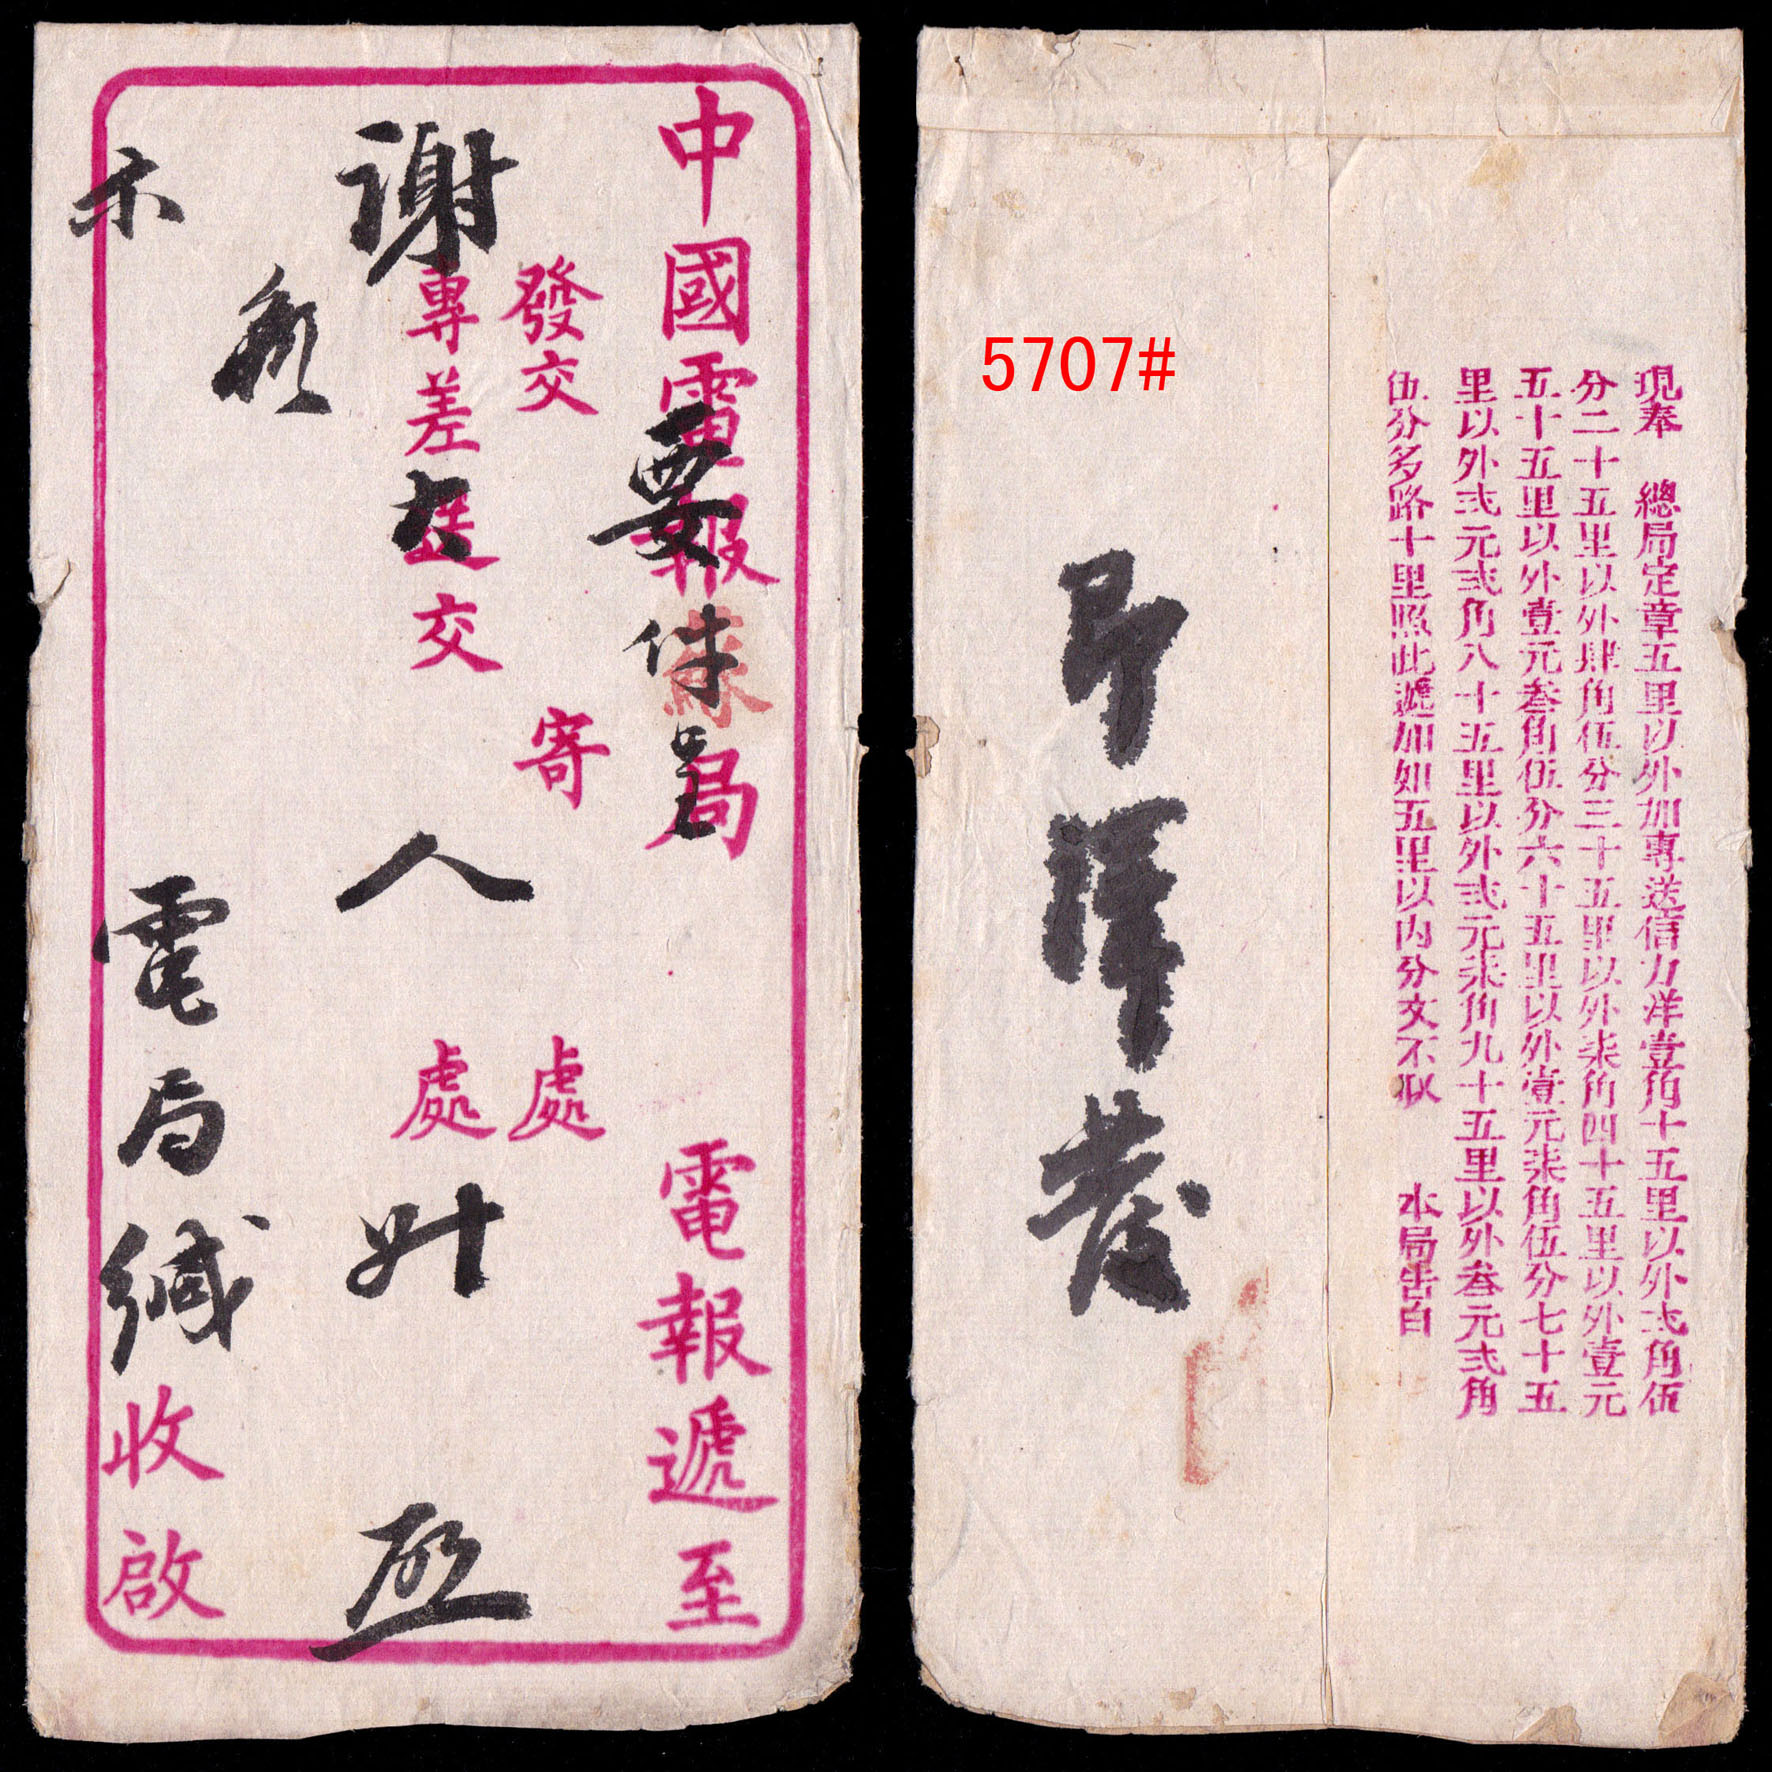 中國電報蘇局 電報遞至
發交 寄 處
專差送交 處
收啟
要件
謝大人 升 啟
電局緘
5707#
現奉 總局定章五里以外加專送信力洋壹角十五里以外弍角伍
分二十五里以外肆角伍分三十五里以外柒角四十五里以外壹元
五十五里以外壹元叁角伍分六十五里以外壹元柒角伍分七十五
里以外弍元弍角八十五里以外弍元柒角九十五里以外叁元弍角
伍分多路十里照此遞加如五里以內分文不取 本局告白
即 發